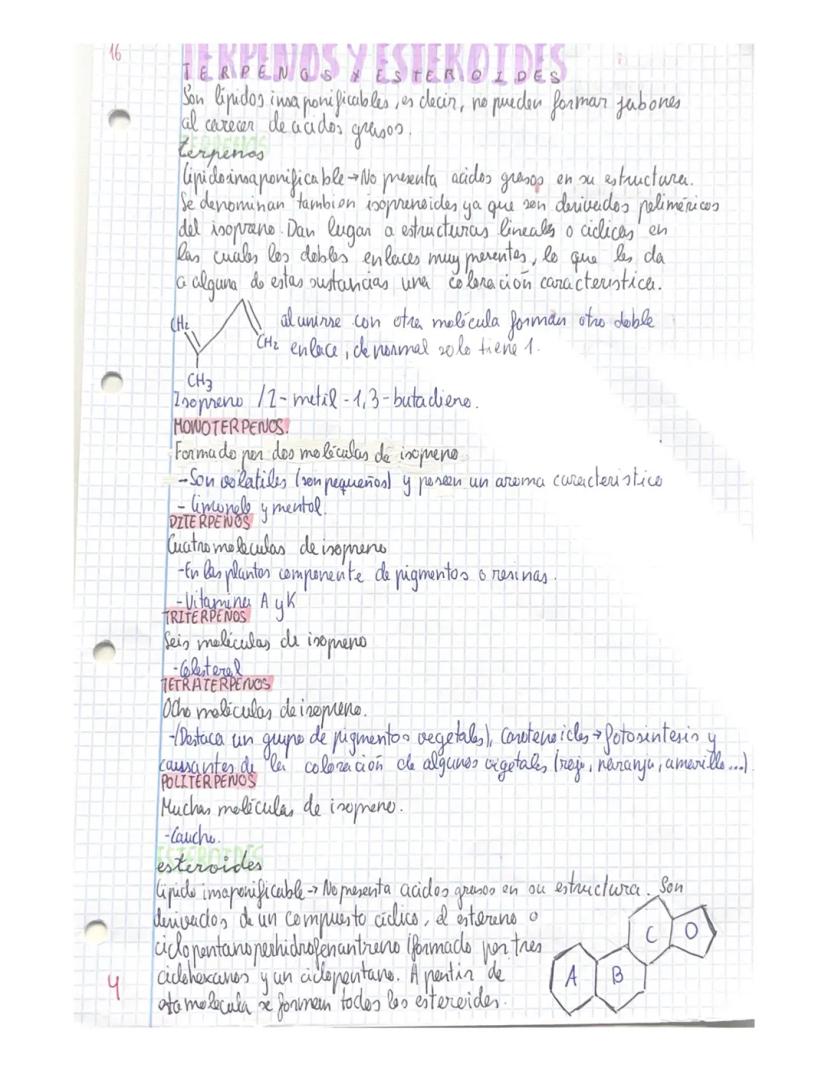 16
TERPENOS Y ESTEROIDES
TERPENOS Y ESTEROIDES
Son lípidos insaponificables, es decir, no pueden formar jabones
al carecer de acidos grasos.
terpenos
Lipido insaponificable → No presenta acidos grasos en su estructura.
Se denominan tambien isoprenoides ya que son derivados poliméricos
del isopreno. Dan lugar a estructuras lineales o cíclicas en
las cuales los dobles enlaces muy presentes, lo que les da
a alguna de estas sustancias una coloración característica.
CH2
CH2
CH3
al unirse con otra molécula forman otro doble
enlace, de normal solo tiene 1.
Isopreno / 2-metil-1,3-butadieno.
MONOTERPENOS.
Formado por dos moléculas de isopreno
- Son volatiles (son pequeños) y poseen un aroma caracteristico
- limonelo y mentol.
DITERPENOS
Cuatro moleculas de isopreno
- En las plantas componente de pigmentos o resinas.
- Vitamina A y K
TRITERPENOS
Seis moléculas de isopreno
- Colesterol
TETRATERPENOS
Ocho moléculas de isopreno.
- (Destaca un grupo de pigmentos vegetales), Carotenoides → fotosintesis y
causantes de la coloración de algunos vegetales (rojo, naranja, amarillo...)
POLITERPENOS
Muchas moléculas de isopreno.
- Caucho.
ESTEROIDES
esteroides
Lipido insaponificable → No presenta acidos grasos en su estructura. Son
derivados de un compuesto cíclico, el esterano o
ciclopentanoperhidrofenantreno (formado por tres
ciclohexanos y un ciclopentano. A partir de
esta molecula se forman todos los esteroides.
A
B
C
D
4